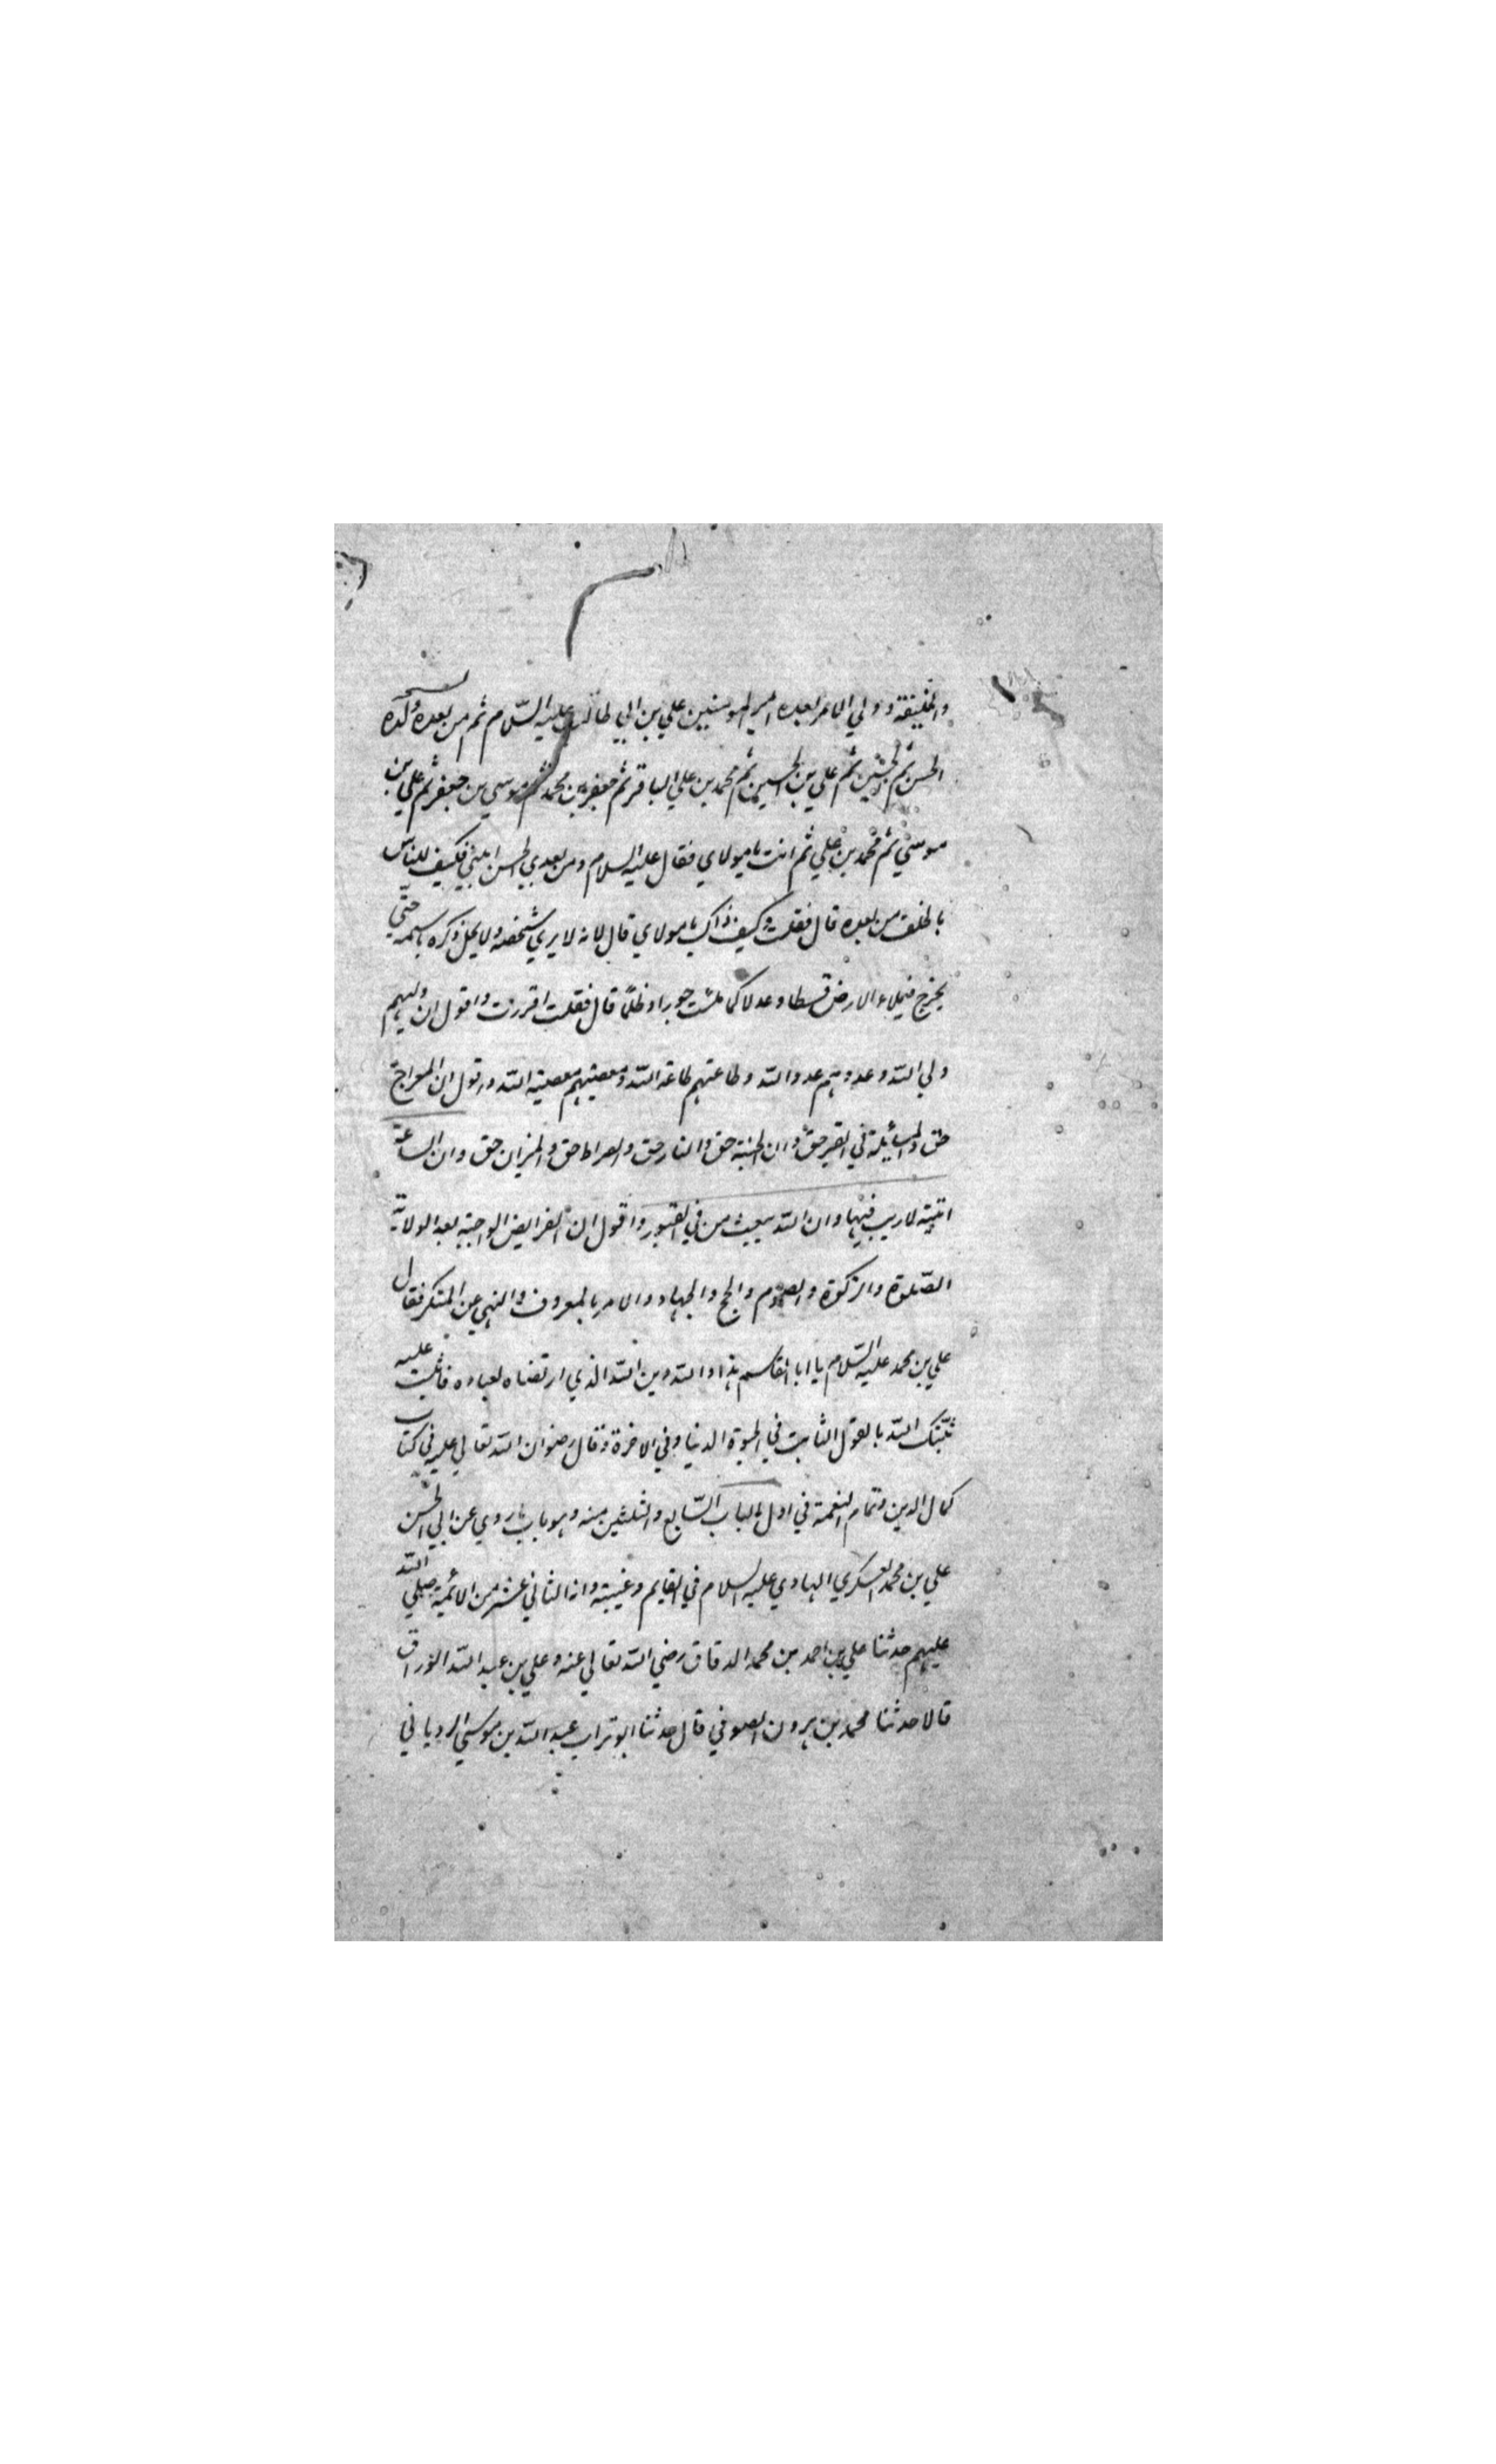 والخليفة وولي الامر بعده امير المومنين علي بن ابي طالب عليه السّلام ثم من بعده ولده
الحسن ثم الحسين ثم علي بن الحسين ثم محمد بن علي الباقر ثم جعفر بن محمد ثم موسي بن جعفر ثم علي بن
موسيٰ ثم محمد بن علي ثم انت يا مولاي فقال عليه السلام ومن بعدي الحسن ابني فكيف للناس
بالخلف من بعده قال فقلت وكيف ذاك يا مولاي قال لانه لا يري شخصه ولا يحل ذكره باسمه حتّي
يخرج فيملاء الارض قسطا وعدلا كما ملئت جورا وظلمًا قال فقلت اقررت واقول ان وليهم
ولي اللّه وعدوهم عدو اللّه وطاعتهم طاعة اللّه ومعصيتهم معصية اللّه واقول ان المعراج
حق والمسائلة في القبر حقّ وان الجنة حق والنار حق والصراط حق والميزان حق وان الساعة
اتية لا ريب فيها وان اللّه يبعث من في القبور واقول ان الفرايض الواجبة بعد الولاية
الصّلوة والزكوة والصوم والحج والجهاد والامر بالمعروف والنهي عن المنكر فقال
علي بن محمد عليه السّلام يا ابا القاسم هذا واللّه دين اللّه الذي ارتضاه لعباده فاثبت عليه
ثبّتك اللّه بالقول الثابت في الحيوة الدنيا وفي الاخرة وقال رضوان اللّه تعالي عليه في كتاب
كمال الدين وتمام النعمة في اول الباب السّابع والثلثين منه وهو باب ما روي عن ابي الحسن
علي بن محمد العسكري الهادي عليه السلام في القايم وغيبته وانه الثاني عشر من الائمة صلي اللّه
عليهم حدثنا علي بن احمد بن محمد الدقاق رضي اللّه تعالي عنه وعلي بن عبد اللّه الوراق
قالا حدثنا محمد بن هرون الصوفي قال حدثنا ابو تراب عبد اللّه بن موسيٰ الروياني